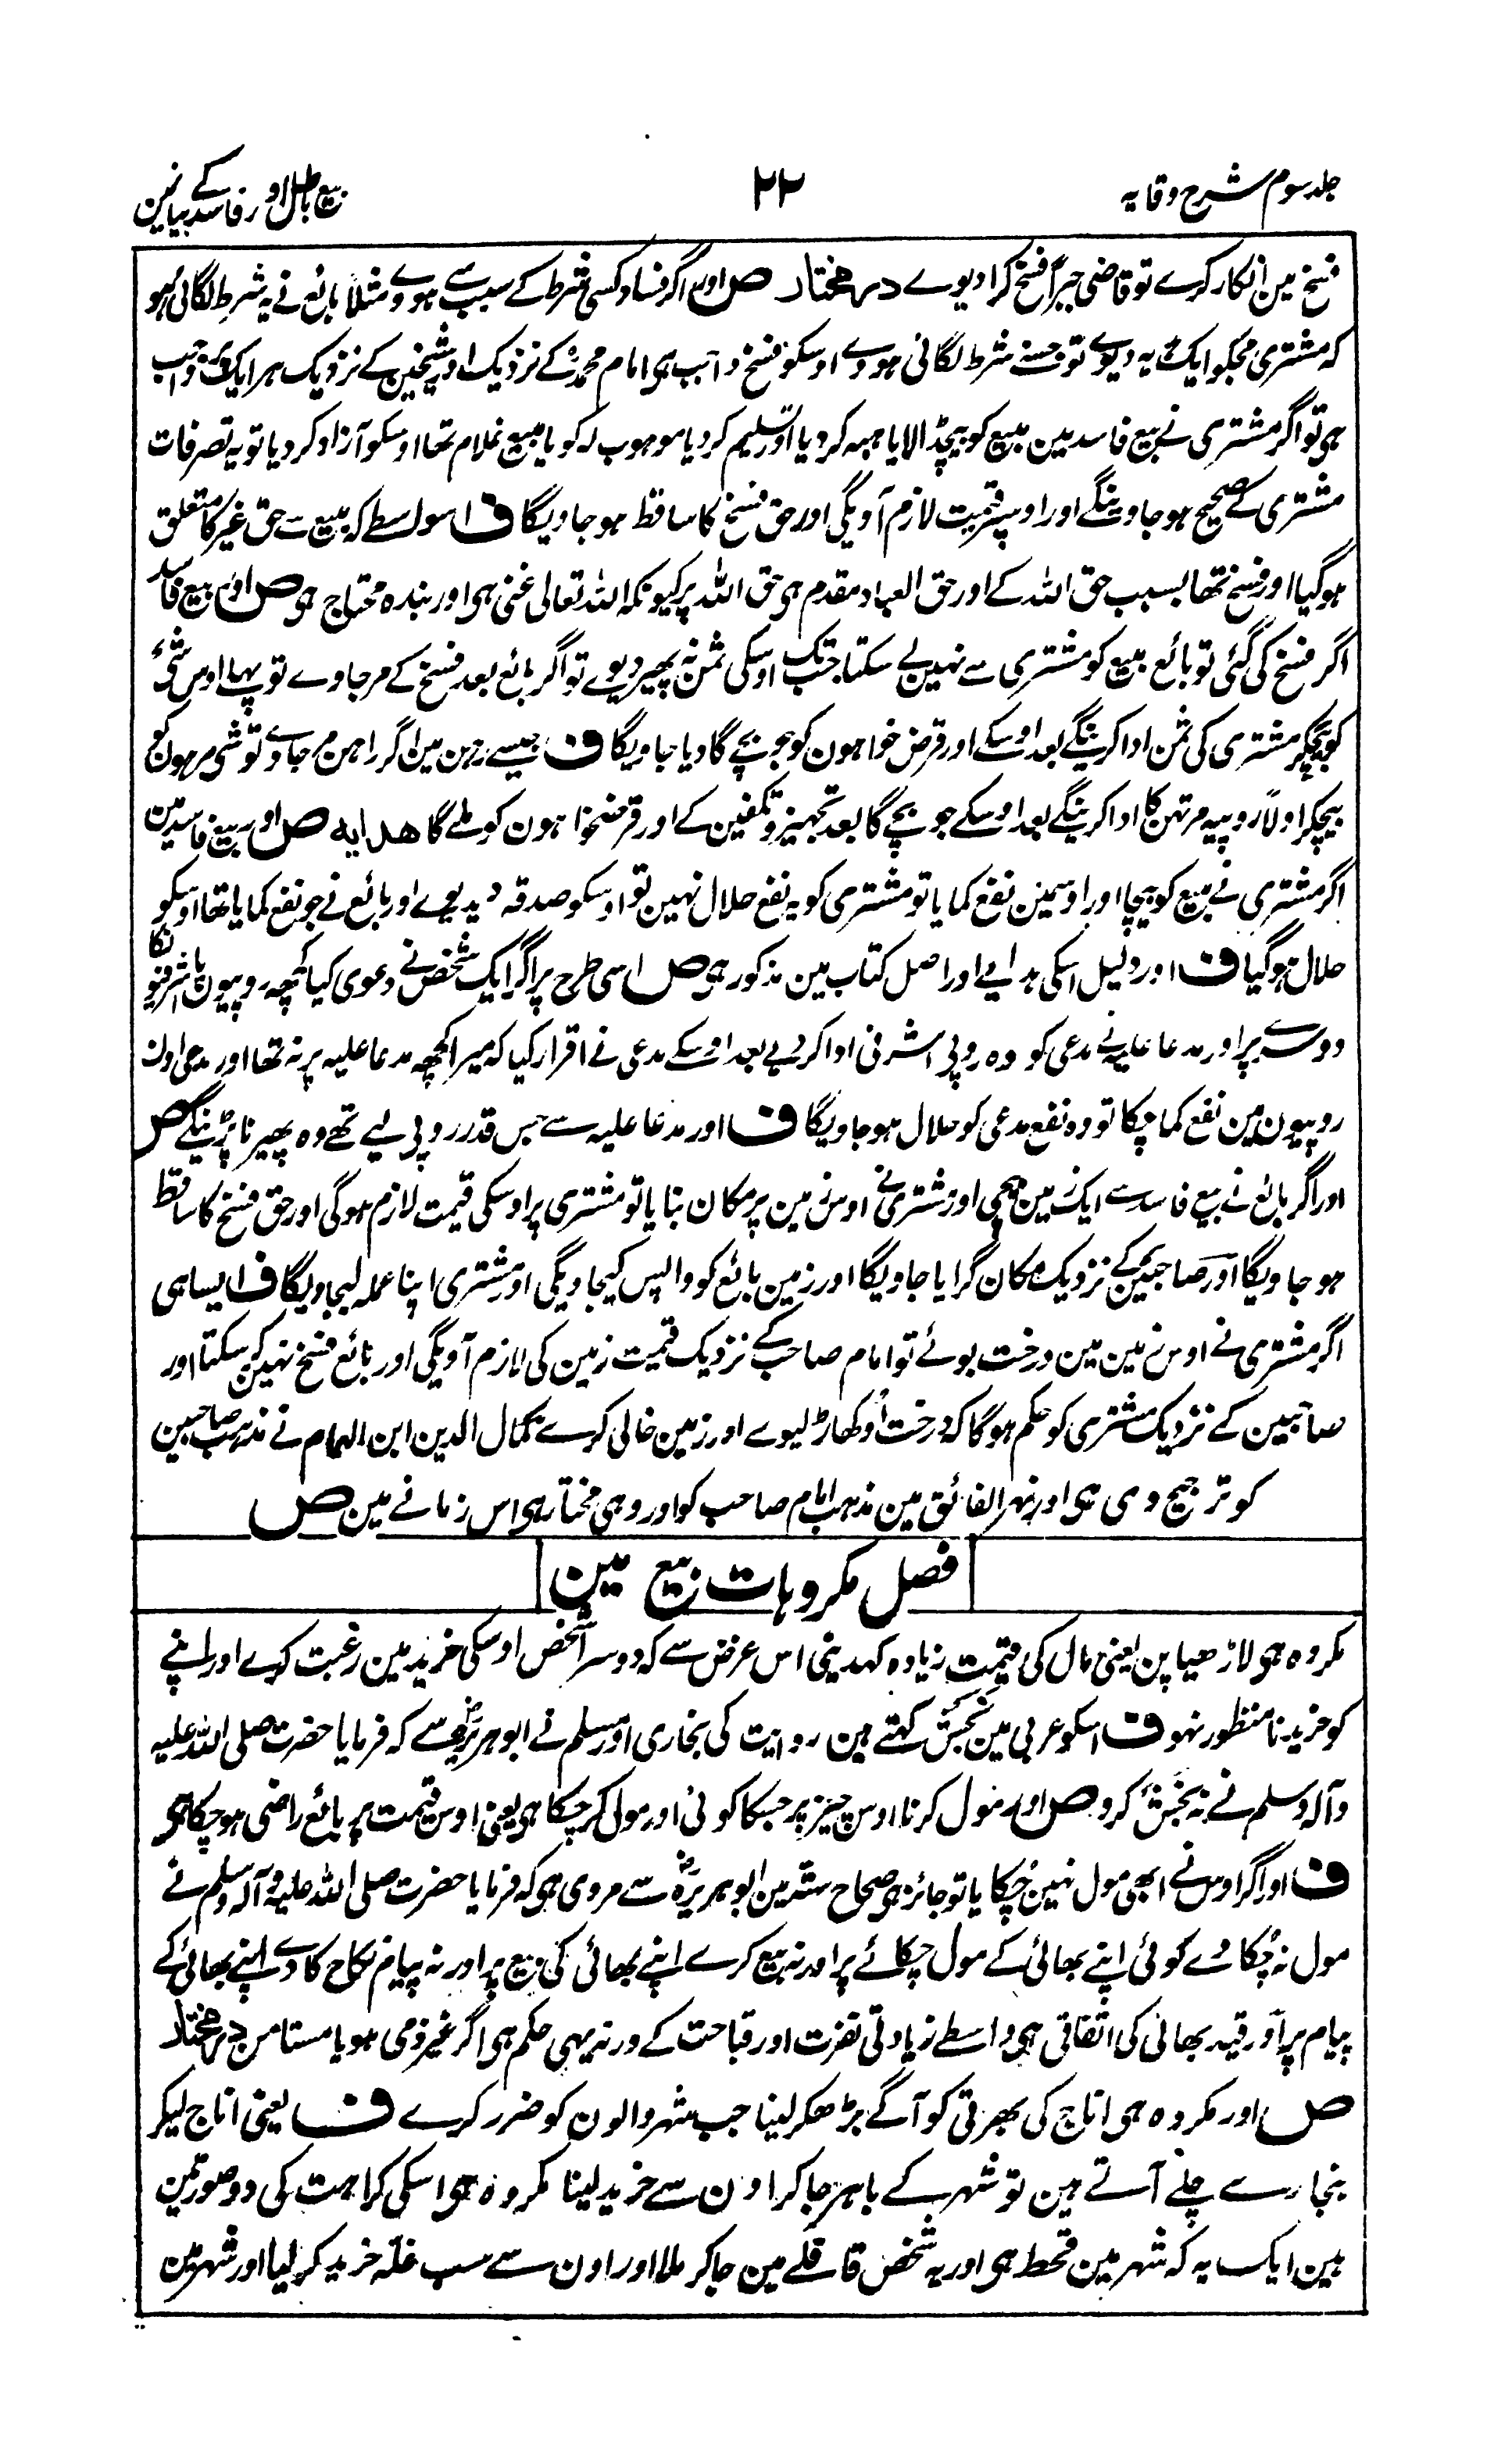 جلد سوم شرح وقایہ
۲۲
بیع باطل اور فاسد کے بیان مین
فسخ مین انکار کرے تو قاضی جبراً فسخ کرا دیوے در مختار ص اور اگر فساد کسی شرط کے سبب سے ہووے مثلاً بائع نے یہ شرط لگائی ہو
کہ مشتری مجکو ایک ہدیہ دیوے تو جسنے شرط لگائی ہووے اوسکو فسخ واجب ہی امام محمدؒ کے نزدیک اور شیخین کے نزدیک ہر ایک پر واجب
ہی تو اگر مشتری نے بیع فاسد مین مبیع کو بیچ ڈالا یا ہبہ کر دیا اور تسلیم کر دیا موہوب لہ کو یا مبیع غلام تھا اوسکو آزاد کر دیا تو یہ تصرفات
مشتری کے صحیح ہو جاوینگے اور اوسپر قیمت لازم آویگی اور حق فسخ کا ساقط ہو جاویگا ف اسواسطے کہ مبیع سے حق غیر کا متعلق
ہوگیا اور فسخ تھا بسبب حق اللہ کے اور حق العباد مقدم ہی حق اللہ پر کیونکہ اللہ تعالی غنی ہی اور بندہ محتاج ہی ص اور بیع فاسد
اگر فسخ کی گئی تو بائع مبیع کو مشتری سے نہین لے سکتا جب تک اوسکی ثمن نہ پھیر دیوے تو اگر بائع بعد فسخ کے مرجاوے تو پہلے اوس شیٔ
کو بیچکر مشتری کی ثمن ادا کرینگے بعد اوسکے اور قرض خواہون کو جو بچے گا دیا جاویگا ف جیسے رہن مین اگر راہن مرجاوے تو شی مرہون کو
بیچکر اولاً روپیہ مرتہن کا ادا کرینگے بعد اوسکے جو بچے گا بعد تجہیز و تکفین کے اور قرضخواہون کو ملے گا ھدایہ ص اور بیع فاسد مین
اگر مشتری نے مبیع کو بیچا اور اوسمین نفع کمایا تو مشتری کو یہ نفع حلال نہین تو اوسکو صدقہ دیدیوے اور بائع نے جو نفع کمایا تھا اوسکو
حلال ہوگیا ف اور دلیل اسکی ہدایے اور اصل کتاب مین مذکور ہی ص اسی طرح پر اگر ایک شخص نے دعوی کیا کچھ روپیون یا اشرفیونکا
دوسرے پر اور مدعا علیہ نے مدعی کو وہ روپی اشرفی ادا کر دیے بعد اوسکے مدعی نے اقرار کیا کہ میرا کچھ مدعا علیہ پر نہ تھا اور مدعی اون
روپیون مین نفع کما چکا تو وہ نفع مدعی کو حلال ہو جاویگا ف اور مدعا علیہ سے جس قدر روپی لیے تھے وہ پھیرنا پڑینگے ص
اور اگر بائع نے بیع فاسد سے ایک زمین بیچی اور مشتری نے اوس زمین پر مکان بنایا تو مشتری پر اوسکی قیمت لازم ہوگی اور حق فسخ کا ساقط
ہو جاویگا اور صاحبین کے نزدیک مکان گرایا جاویگا اور زمین بائع کو واپس کیجاویگی اور مشتری اپنا عملہ لیجاویگا ف ایسا ہی
اگر مشتری نے اوس زمین مین درخت بوئے تو امام صاحب کے نزدیک قیمت زمین کی لازم آویگی اور بائع فسخ نہین کر سکتا اور
صاحبین کے نزدیک مشتری کو حکم ہوگا کہ درخت اُوکھاڑ لیوے اور زمین خالی کرے کمال الدین ابن الہمام نے مذہب صاحبین
کو ترجیح دی ہی اور نہر الفائق مین مذہب امام صاحب کو اور وہی مختار ہی اس زمانے مین ص
فصل مکروہات بیع مین
مکروہ ہی لاڑھیاپن یعنی مال کی قیمت زیادہ کہدینی اس غرض سے کہ دوسرا شخص اوسکی خرید مین رغبت کرے اور اپنے
کو خریدنا منظور نہو ف اسکو عربی مین نجش کہتے ہین روایت کی بخاری اور مسلم نے ابو ہریرہؓ سے کہ فرمایا حضرت صلی اللہ علیہ
وآلہ وسلم نے نہ نجش کرو ص اور مول کرنا اوس چیز پر جسکا کوئی اور مول کر چکا ہی یعنی اوس قیمت پر بائع راضی ہو چکا ہی
ف اور اگر اوس نے ابھی مول نہین چکایا تو جائز ہی صحاح ستہ مین ابو ہریرہؓ سے مروی ہی کہ فرمایا حضرت صلی اللہ علیہ وآلہ وسلم نے
مول نہ چکاوے کوئی اپنے بھائی کے مول چکائے پر اور نہ بیع کرے اپنے بھائی کی بیع پر اور نہ پیام نکاح کا دے اپنے بھائی کے
پیام پر اور قید بھائی کی اتفاقی ہی واسطے زیادتی نفرت اور قباحت کے ورنہ یہی حکم ہی اگر غیر ذمی ہو یا مستامن در مختار
ص اور مکروہ ہی اناج کی بھرتی کو آگے بڑھکر لینا جب شہر والون کو ضرر کرے ف یعنی اناج لیکر
بنجارے چلے آتے ہین تو شہر کے باہر جا کر اون سے خرید لینا مکروہ ہی اسکی کراہت کی دو صورتین
ہین ایک یہ کہ شہر مین قحط ہی اور یہ شخص قافلے مین جا کر ملا اور اون سے سب غلّہ خرید کر لیا اور شہر مین